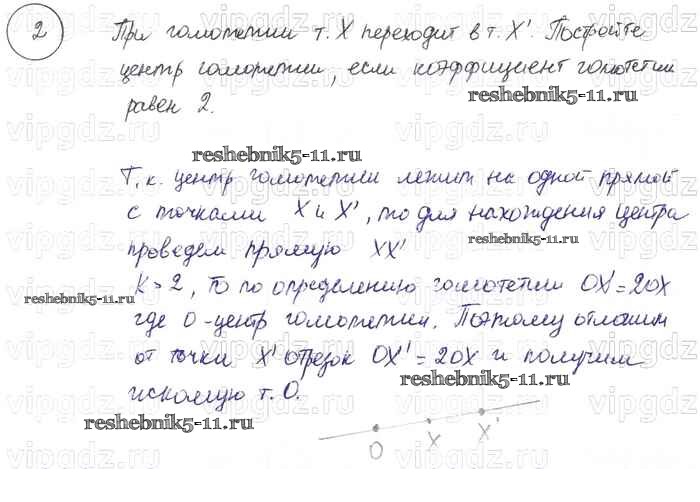 2
При гомотетии т. X переходит в т. X'. Постройте
центр гомотетии, если коэффициент гомотетии
равен 2.
reshebnik5-11.ru
reshebnik5-11.ru
Т.к. центр гомотетии лежит на одной прямой
с точками X и X', то для нахождения центра
reshebnik5-11.ru
проведем прямую XX'
K = 2, то по определению гомотетии OX' = 2OX
reshebnik5-11.ru
где O - центр гомотетии. Поэтому отложим
от точки X' отрезок OX' = 2OX и получим
reshebnik5-11.ru
искомую т. O.
reshebnik5-11.ru
O X X'
vipgdz.ru vipgdz.ru vipgdz.ru vipgdz.ru